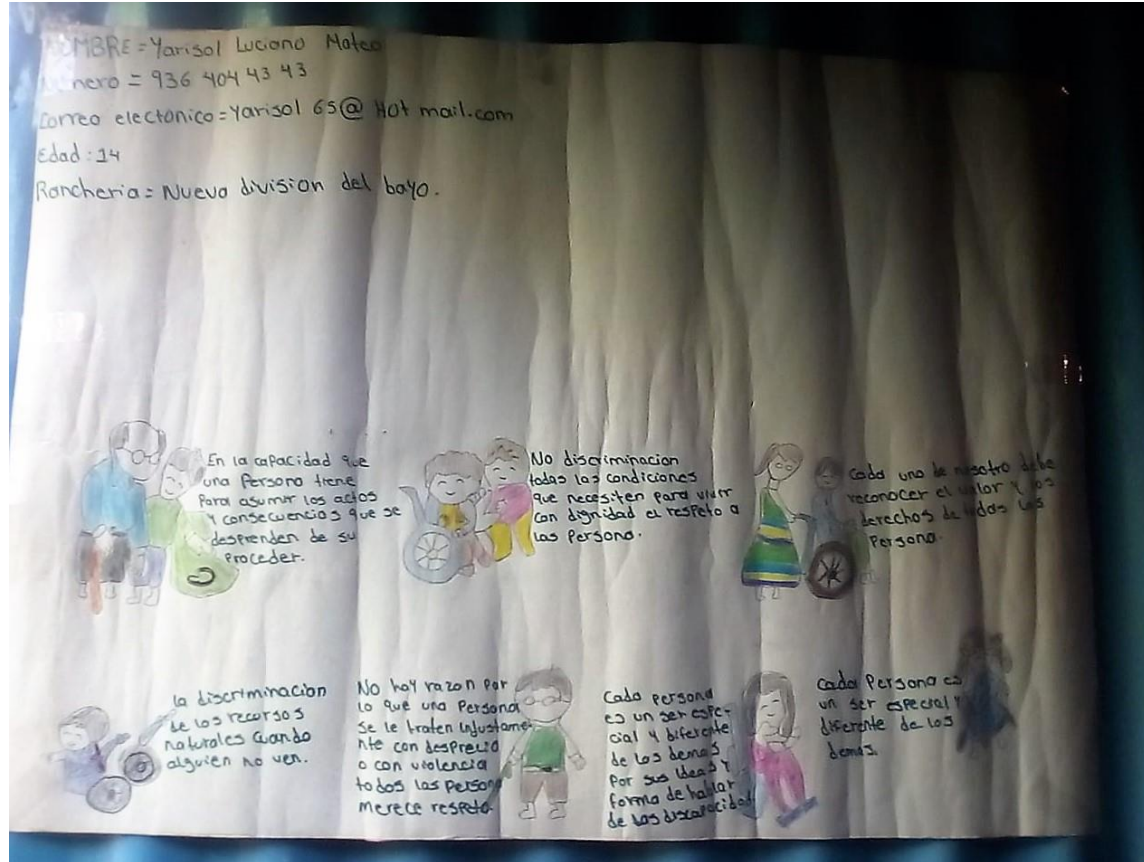 NOMBRE = Yarisol Luciano Mateo
Número = 936 404 43 43
Correo electonico = Yarisol 65@ Hot mail.com
Edad : 14
Rancheria = Nueva division del bayo.
En la capacidad que
una Persona tiene
Para asumir los actos
y consecuencias que se
desprenden de su
Proceder.
No discriminacion
todas las condiciones
que necesiten para vivir
con dignidad el respeto a
las Persona.
Cada uno de nosotro debe
reconocer el valor y los
derechos de todos las
Persona.
la discriminacion
de los recursos
naturales cuando
alguien no ven.
No hay razon Por
lo que una Persona
se le traten injustame
nte con desprecio
o con violencia
todos las Persona
merece respeto.
Cada persona
es un ser espe-
cial y diferente
de los demas
Por sus ideas y
forma de hablar
de las discapacidad
Cada Persona es
un ser especial y
diferente de los
demas.